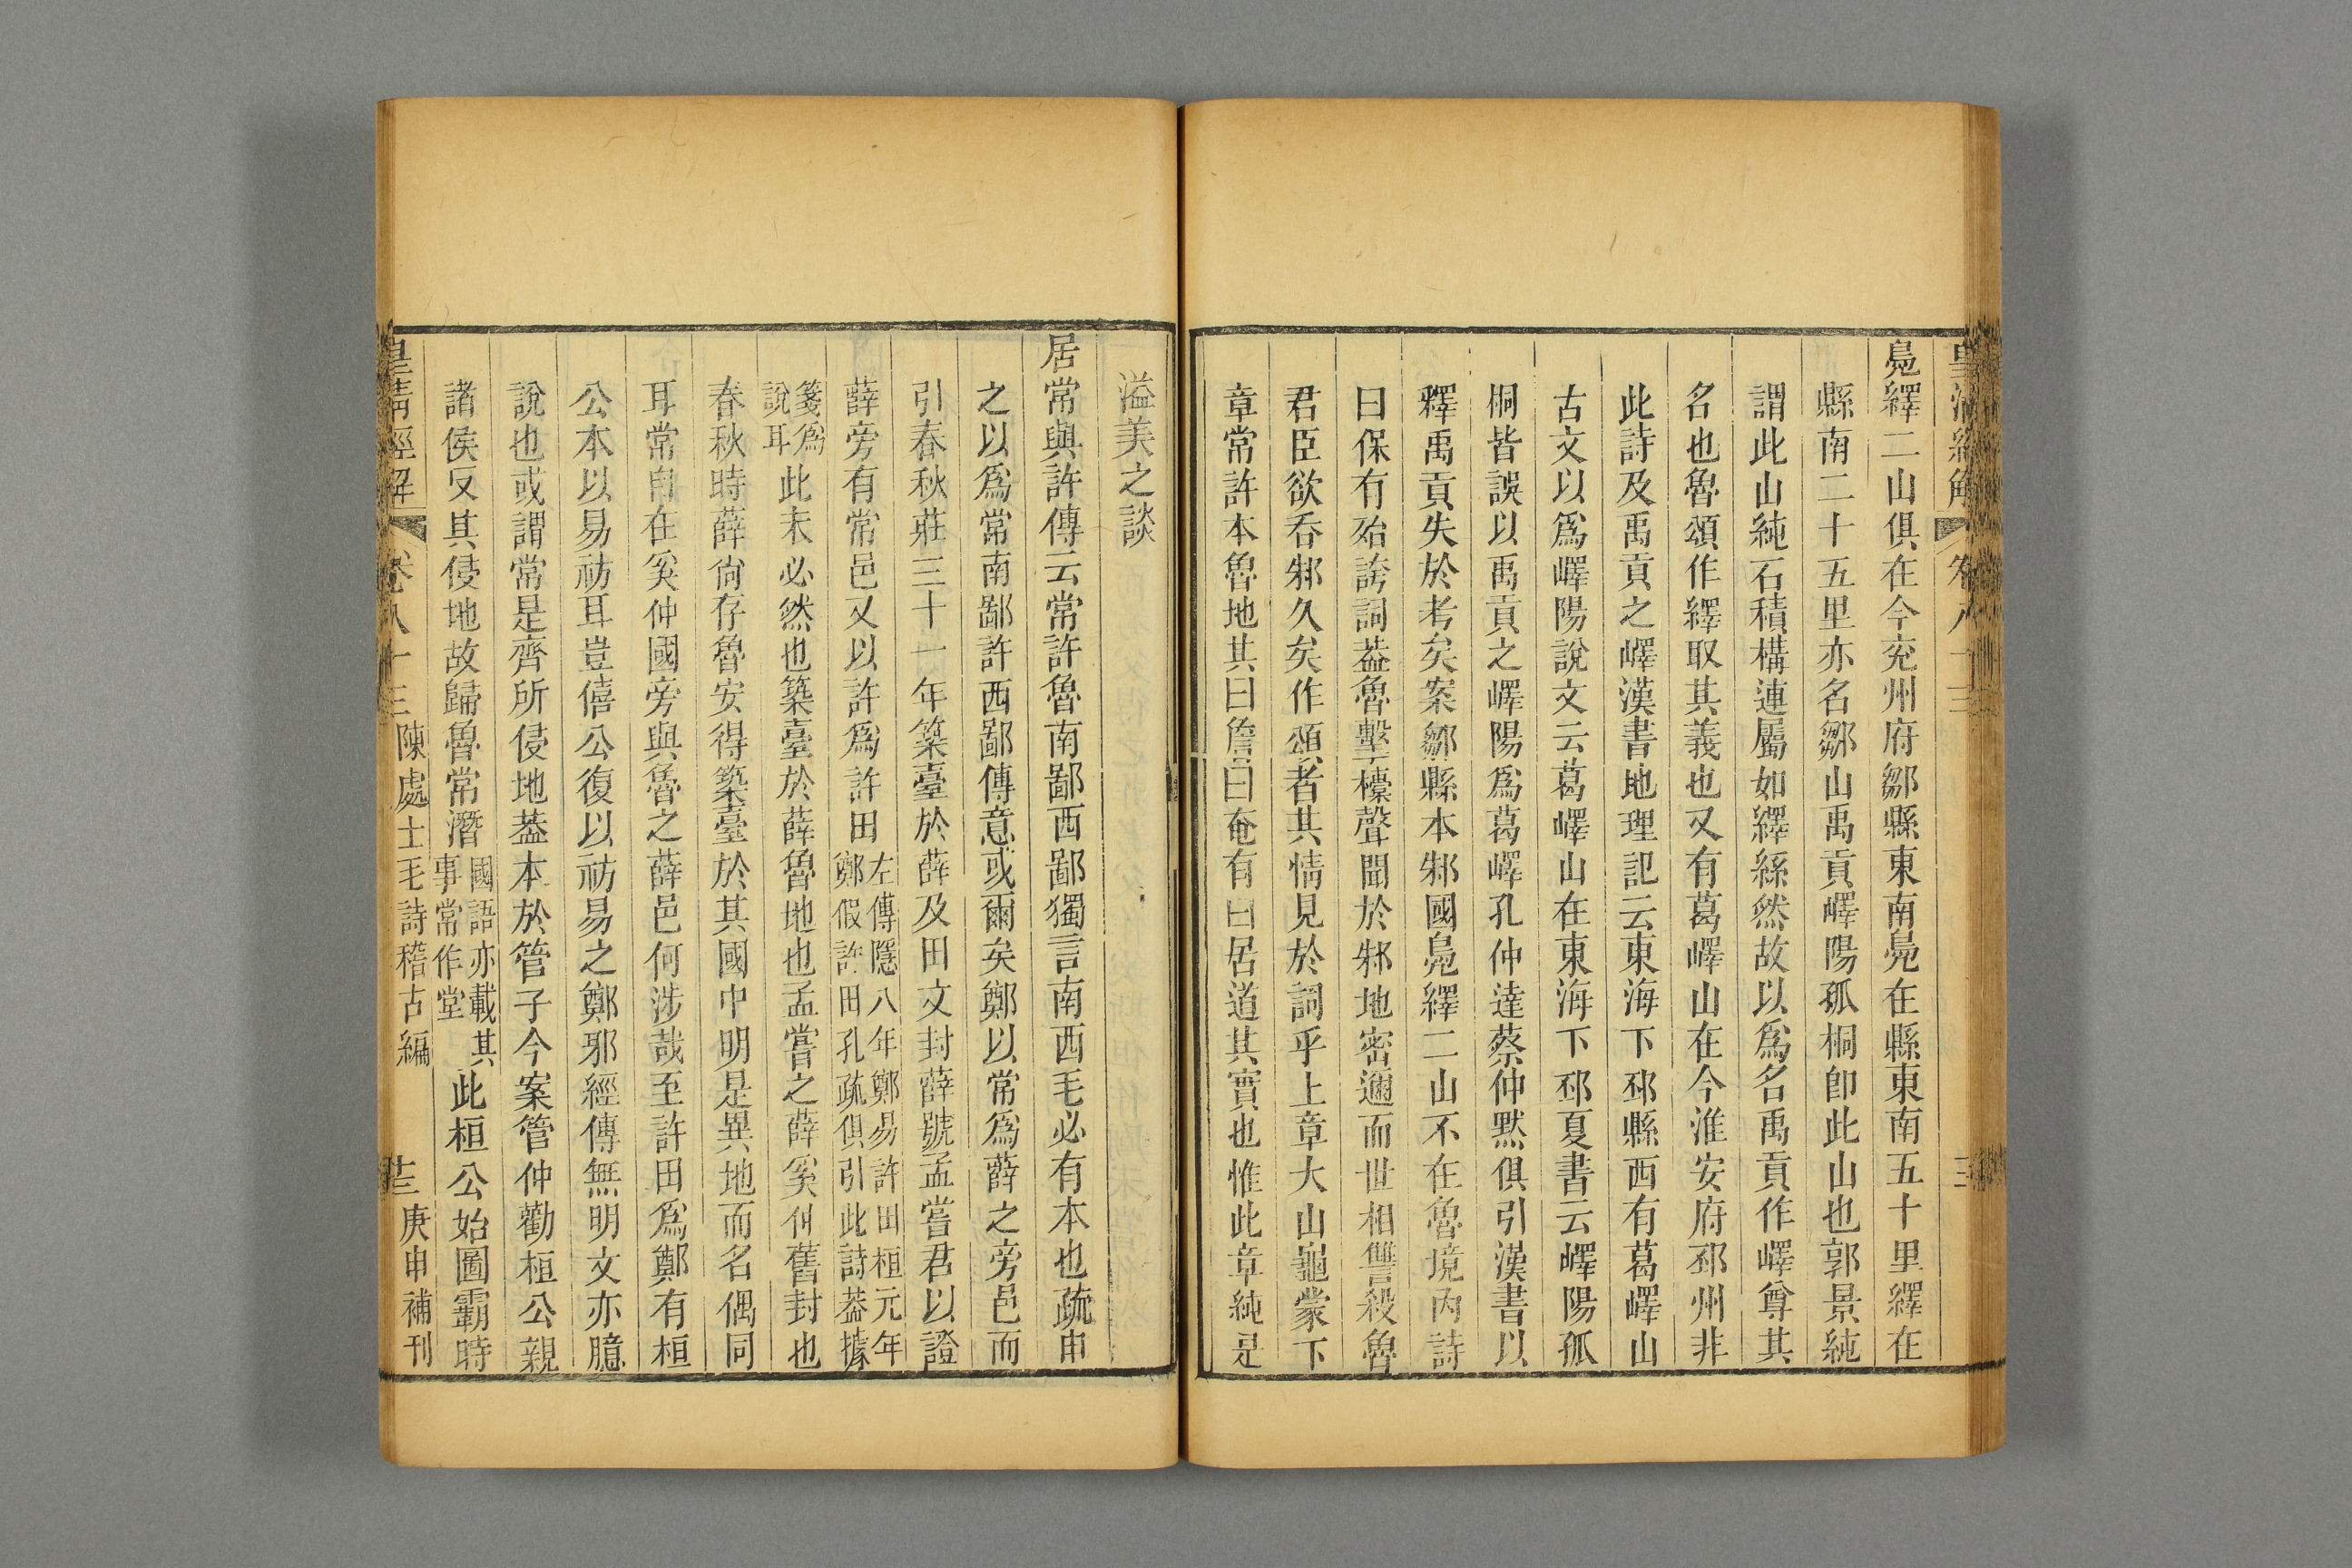 皇清經解 卷八十三
鳧繹二山俱在今兖州府鄒縣東南鳧在縣東南五十里繹在
縣南二十五里亦名鄒山禹貢嶧陽孤桐卽此山也郭景純
謂此山純石積構連屬如繹絲然故以爲名禹貢作嶧尊其
名也魯頌作繹取其義也又有葛嶧山在今淮安府邳州非
此詩及禹貢之嶧漢書地理記云東海下邳縣西有葛嶧山
古文以爲嶧陽說文云葛嶧山在東海下邳夏書云嶧陽孤
桐皆誤以禹貢之嶧陽爲葛嶧孔仲達蔡仲黙俱引漢書以
釋禹貢失於考矣案鄒縣本邾國鳧繹二山不在魯境內詩
曰保有殆誇詞葢魯擊檯聲聞於邾地密邇而世相讐殺魯
君臣欲吞邾久矣作頌者其情見於詞乎上章大山龜蒙下
章常許本魯地其曰詹曰奄有曰居道其實也惟此章純是
溢美之談
居常與許傳云常許魯南鄙西鄙獨言南西毛必有本也疏申
之以爲常南鄙許西鄙傳意或爾矣鄭以常爲薛之旁邑而
引春秋莊三十一年築臺於薛及田文封薛號孟嘗君以證
薛旁有常邑又以許爲許田左傳隱八年鄭易許田桓元年
鄭假許田孔疏俱引此詩葢據
箋爲
說耳此未必然也築臺於薛魯地也孟嘗之薛奚仲舊封也
春秋時薛尙存魯安得築臺於其國中明是異地而名偶同
耳常自在奚仲國旁與魯之薛邑何涉哉至許田爲鄭有桓
公本以易祊耳豈僖公復以祊易之鄭邪經傳無明文亦臆
說也或謂常是齊所侵地葢本於管子今案管仲勸桓公親
諸侯反其侵地故歸魯常潛國語亦載其
事常作堂此桓公始圖霸時
皇清經解 卷八十三 陳處士毛詩稽古編 庚申補刊